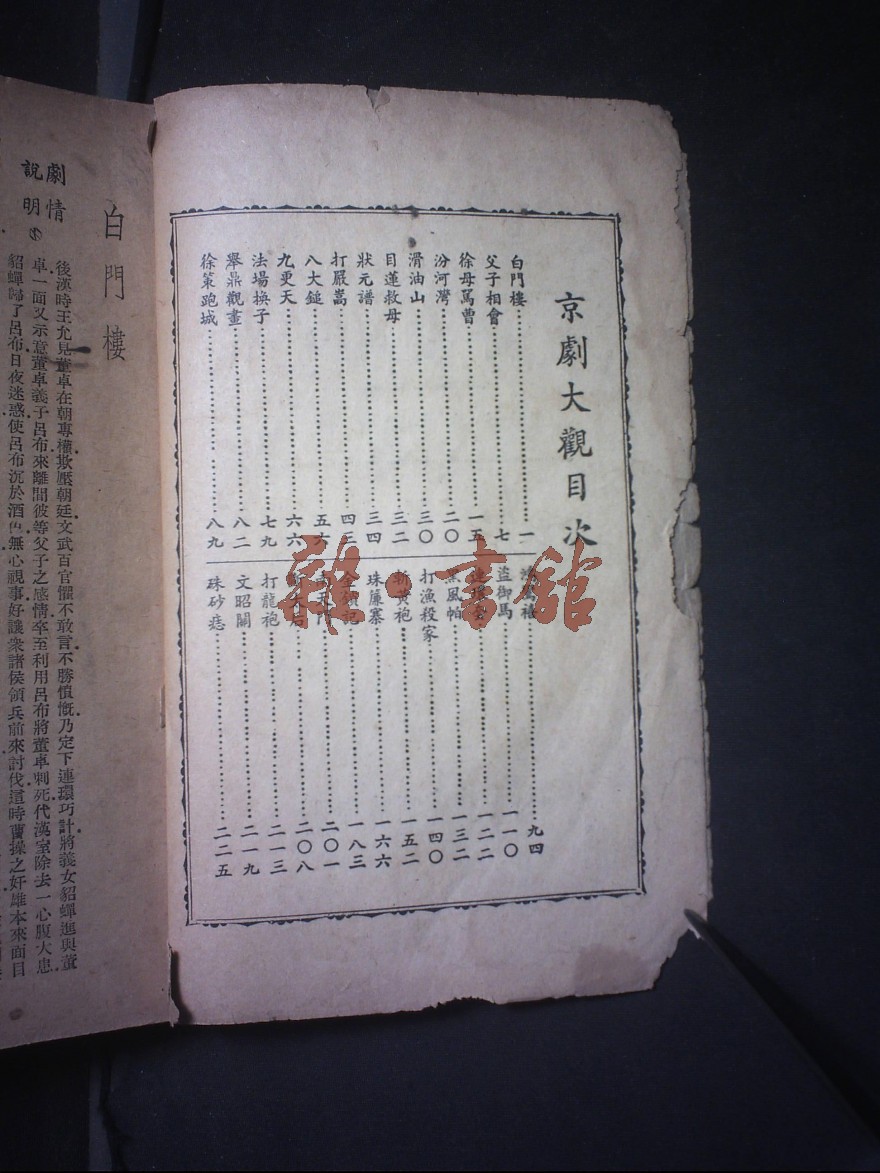 京劇大觀目次
白門樓 一
父子相會 七
徐母罵曹 一五
汾河灣 二〇
滑油山 三〇
目蓮救母 三二
狀元譜 三四
打嚴嵩 四三
八大鎚 五六
九更天 六六
法場換子 七九
舉鼎觀畫 八二
徐策跑城 八九
九四
盜御馬 一一〇
一二二
黑風帕 一三二
打漁殺家 一四〇
斬黃袍 一五二
珠簾寨 一六六
一八三
南天門 二〇一
二〇八
打龍袍 二一三
文昭關 二一九
硃砂痣 二二五
雜·書館
白門樓
劇情說明
後漢時王允見董卓在朝專權欺壓朝廷文武百官懼不敢言不勝憤慨乃定下連環巧計將義女貂蟬進與董
卓一面又示意董卓義子呂布來離間彼等父子之感情卒至利用呂布將董卓刺死代漢室除去一心腹大患
貂蟬歸了呂布日夜迷惑使呂布沉於酒色無心視事好讓衆諸侯領兵前來討伐這時曹操之奸雄本來面目